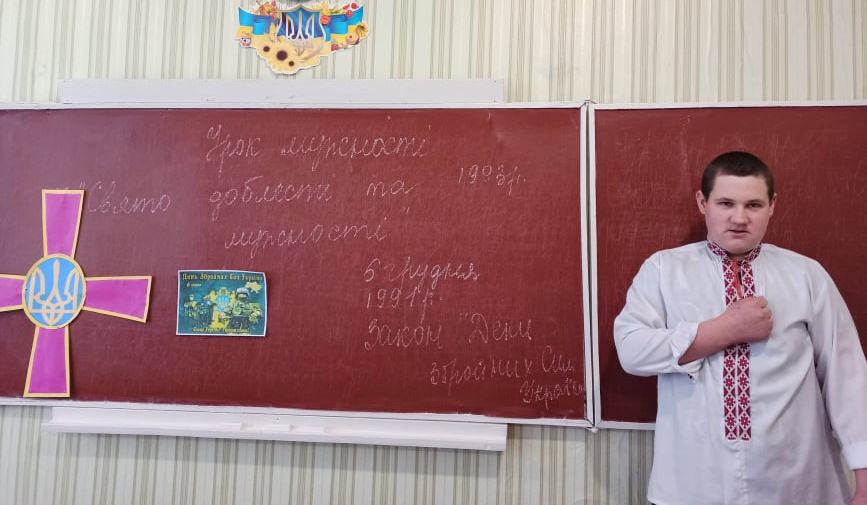 Урок мужності
"Свято доблесті та
мужності"
1993р.
6 грудня
1991р.
Закон "День
Збройних Сил
України
День Збройних Сил України
6 грудня